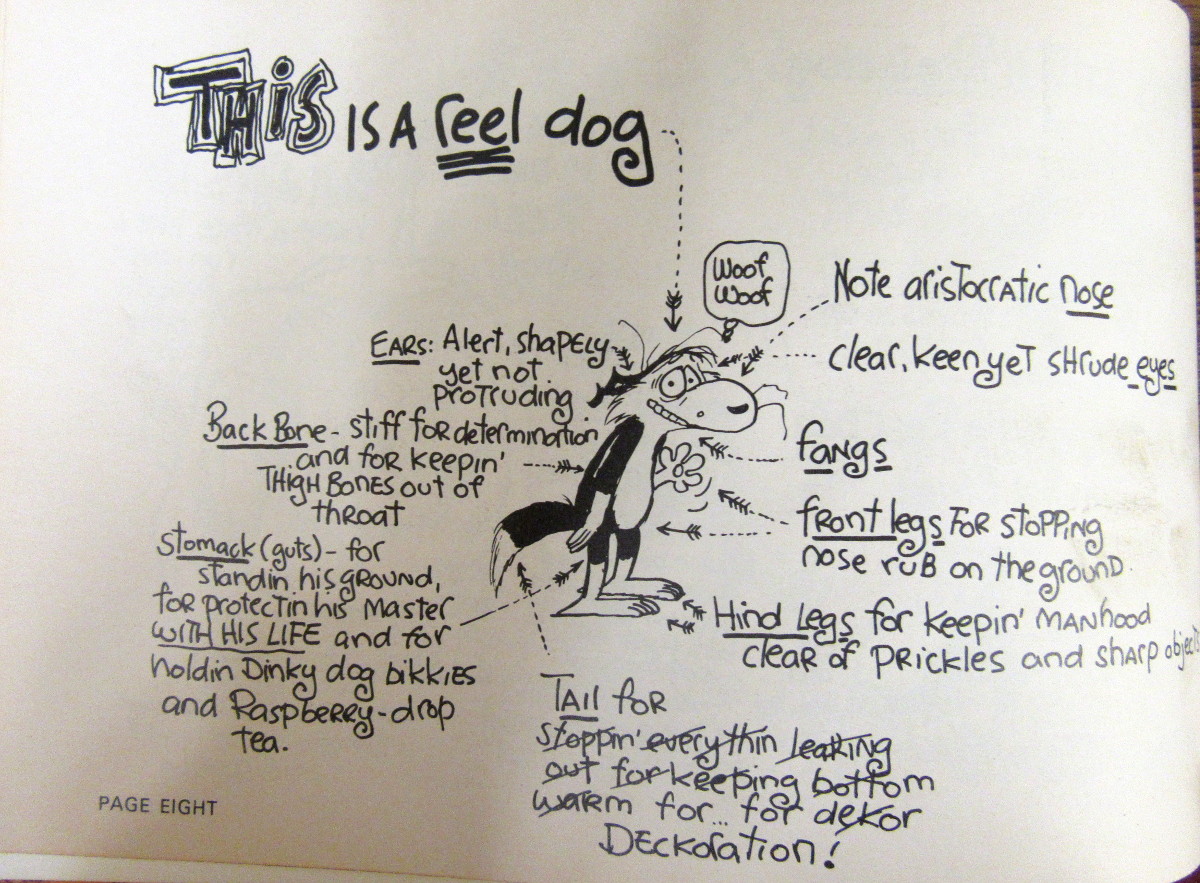 THiS IS A reel dog
Woof
Woof
Note aristocratic nose
clear, keen yet shrude eyes
EARS: Alert, shapely
yet not
protruding
Back Bone - stiff for determination
and for keepin'
THigH BONES out of
throat
fangs
front legs for stopping
nose rub on the ground.
Stomack (guts) - for
standin his ground,
for protectin his master
WITH HIS LIFE and for
holdin Dinky dog bikkies
and Raspberry-drop
tea.
Hind Legs for keepin' manhood
clear of prickles and sharp objects
Tail for
stoppin' everythin leaking
out for keeping bottom
warm for... for dekor
Deckoration!
PAGE EIGHT